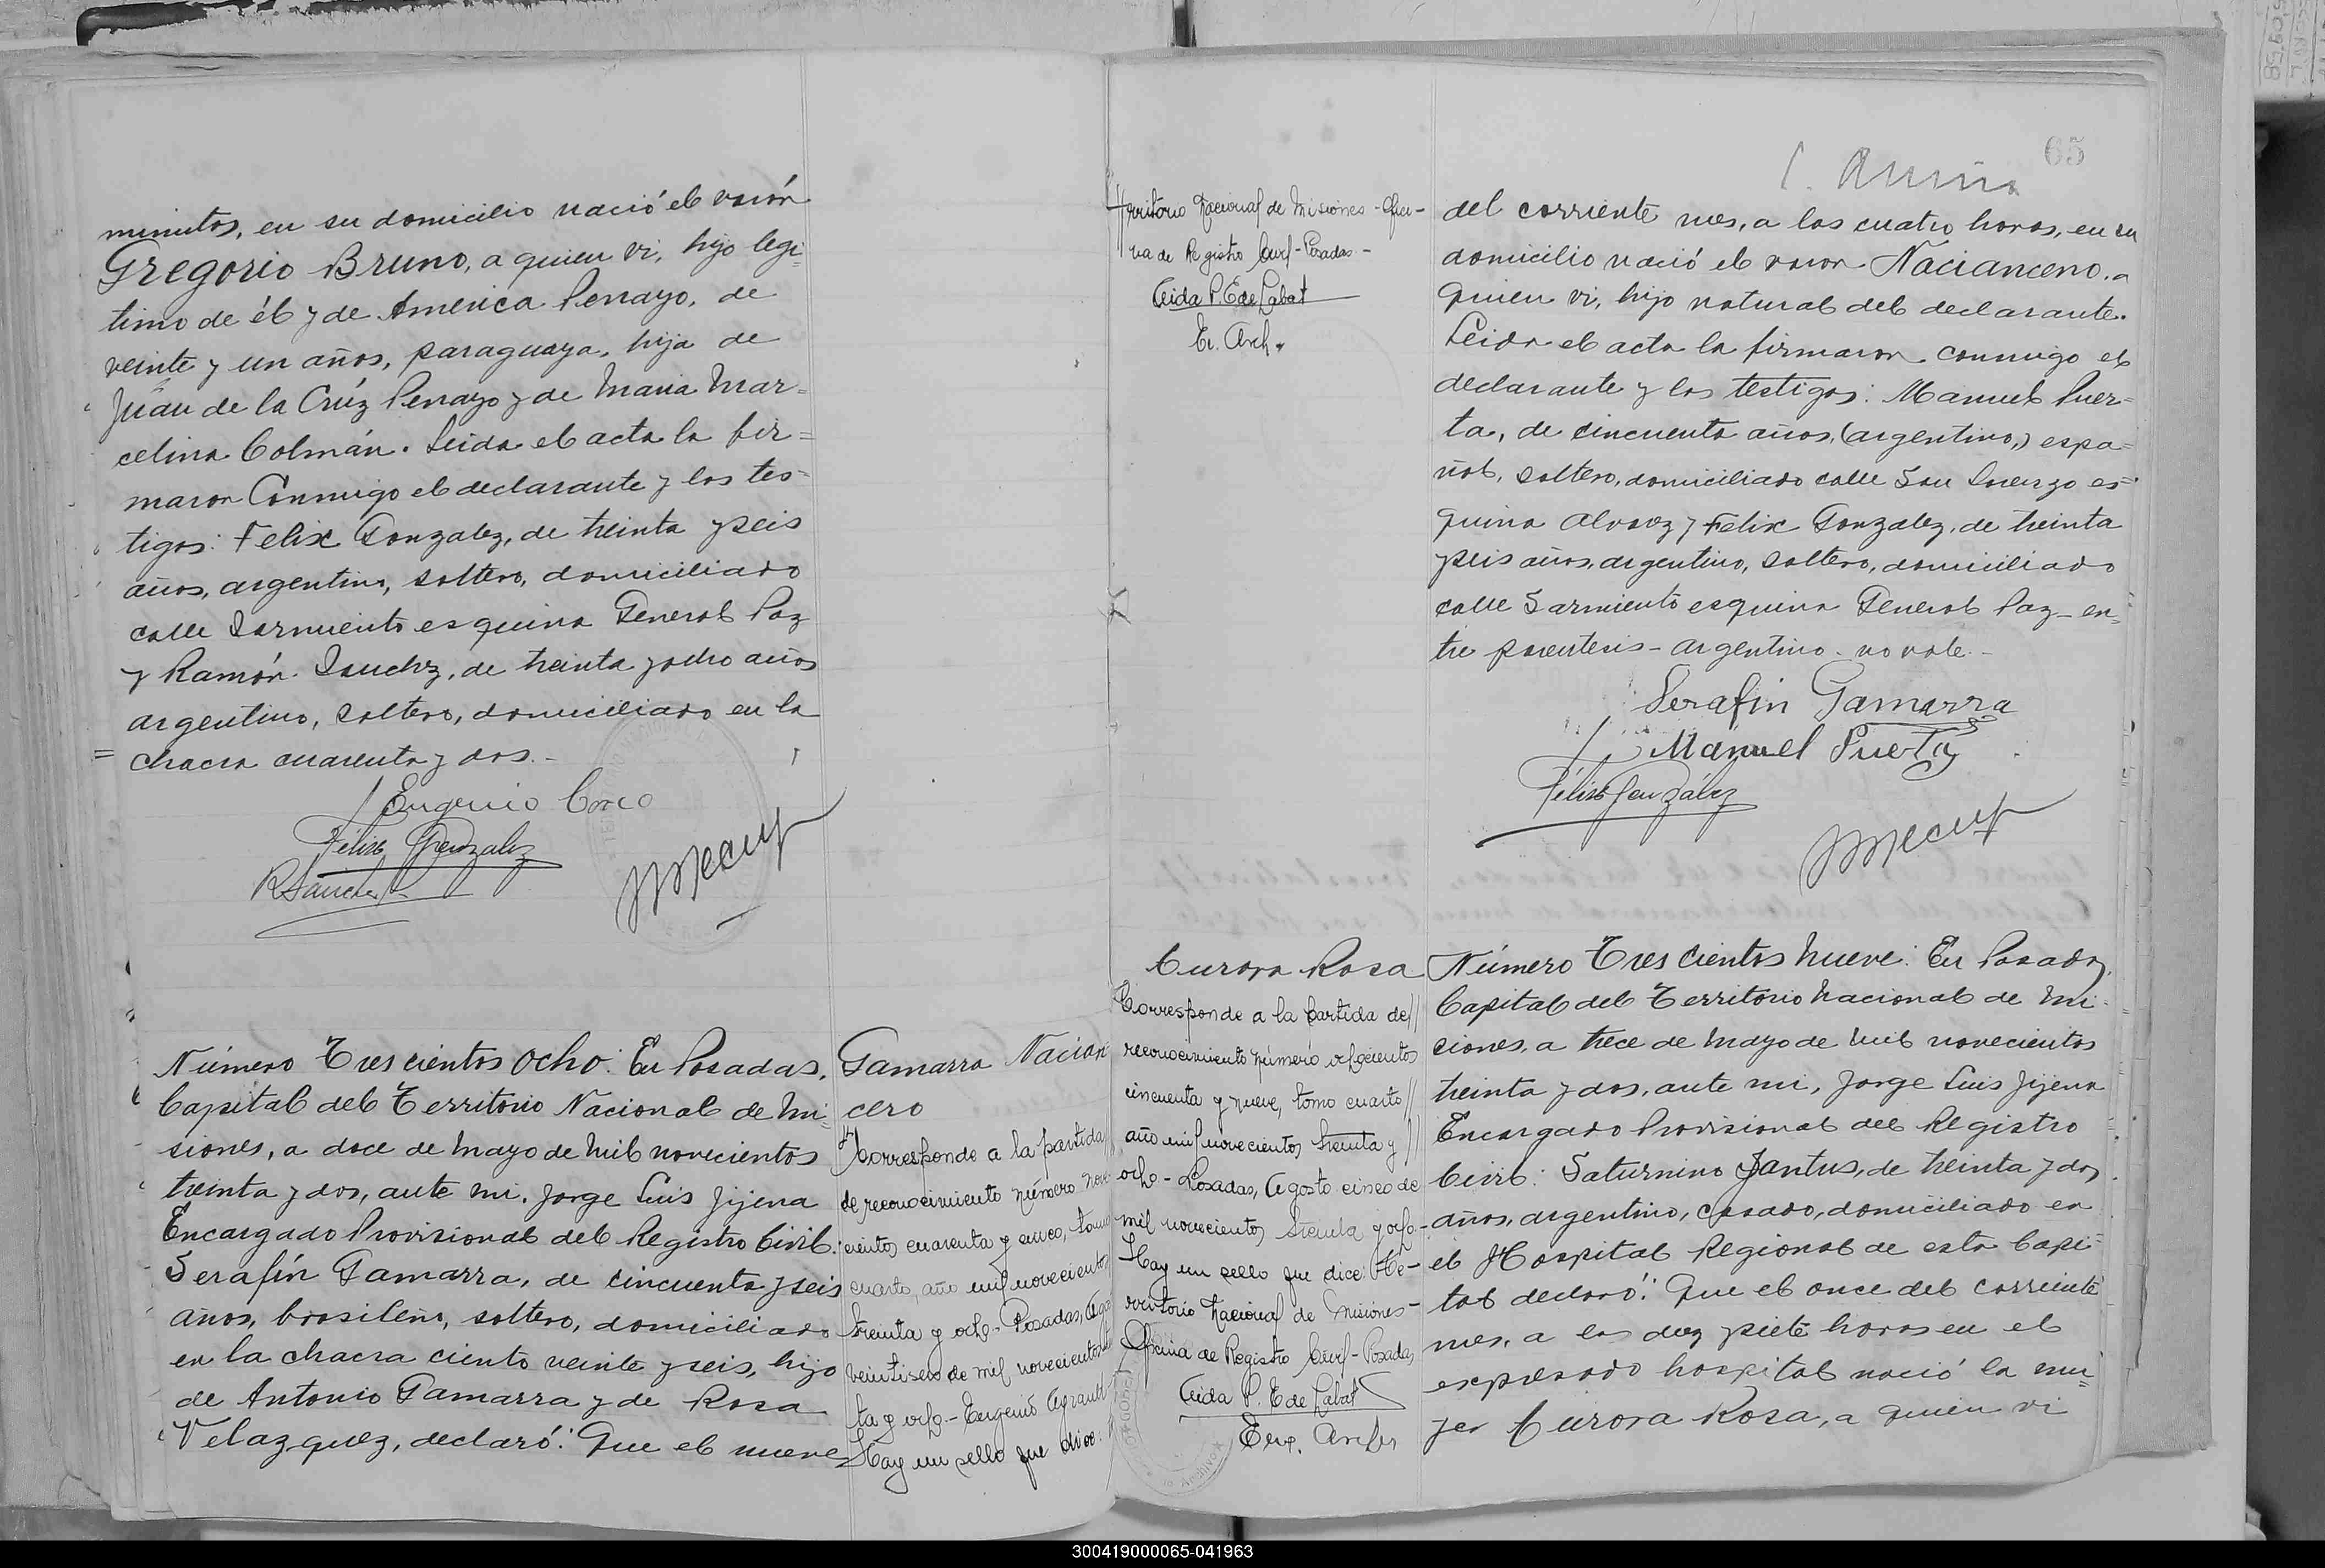 minutos, en su domicilio nació el varón
Gregorio Bruno, a quien vi, hijo legí-
timo de él y de América Penayo, de
veinte y un años, paraguaya, hija de
Juan de la Crúz Penayo y de Maria Mar=
celina Colmán. Leida el acta la fir=
maron Conmigo el declarante y los tes-
tigos: Felix Gonzalez, de treinta y seis
años, argentino, soltero, domiciliado
calle Sarmiento esquina General Paz
y Ramón Sanchez, de treinta y ocho años
argentino, soltero, domiciliado en la
= chacra cuarenta y dos.-
Eugenio
Félix Gonzalez
R Sanchez
Número Trescientos Ocho: En Posadas,
Capital del Territorio Nacional de Mi=
siones, a doce de Mayo de Mil novecientos
treinta y dos, ante mi, Jorge Luis Jijena
Encargado Provisional del Registro Civil:
Serafín Gamarra, de cincuenta y seis
años, brasileño, soltero, domiciliado
en la chacra ciento veinte y seis, hijo
de Antonio Gamarra y de Rosa
Velazquez, declaró: Que el nueve
Gamarra Nacian
ceno
Corresponde a la partida
de reconocimiento número nove-
cientos cuarenta y cinco, tomo
cuarto, año mil novecientos
treinta y ocho- Posadas,
veintiseis de mil novecientos
ta y ocho- Eugenio
Hay un sello que dice:
65
Territorio Nacional de Misiones - Ofici-
na de Registro Civil - Posadas -
Aida P. E de Labat
Er. Arch.
del corriente mes, a las cuatro horas, en su
domicilio nació el varon Nacianceno, a
quien vi, hijo natural del declarante.
Leida el acta la firmaron conmigo el
declarante y los testigos: Manuel Puer=
ta, de cincuenta años, (argentino,) espa=
ñol, soltero, domiciliado calle San Lorenzo es=
quina Alvarez y Felix Gonzalez, de treinta
y seis años, argentino, soltero, domiciliado
calle Sarmiento esquina General Paz - en=
tre parentesis - argentino - no vale -
Serafin Gamarra
Manuel Puerta
Félix González
Aurora Rosa
Corresponde a la partida de
reconocimiento número ochocientos
cincuenta y nueve, tomo cuarto
año mil novecientos treinta y
ocho - Posadas, Agosto cinco de
mil novecientos treinta y ocho-
Hay un sello que dice: Te-
rritorio Nacional de Misiones-
Oficina de Registro Civil - Posadas
Aida P. E de Labat
Número Trescientos Nueve: En Posadas,
Capital del Territorio Nacional de Mi-
ciones, a trece de Mayo de Mil novecientos
treinta y dos, ante mi, Jorge Luis Jijena
Encargado Provisional del Registro
Civil: Saturnino Jantus, de treinta y dos
años, argentino, casado, domiciliado en
el Hospital Regional de esta Capi=
tal declaró: Que el once del corriente
mes, a las diez y siete horas en el
expresado hospital nació la mu=
jer Aurora Rosa, a quien vi
300419000065-041963